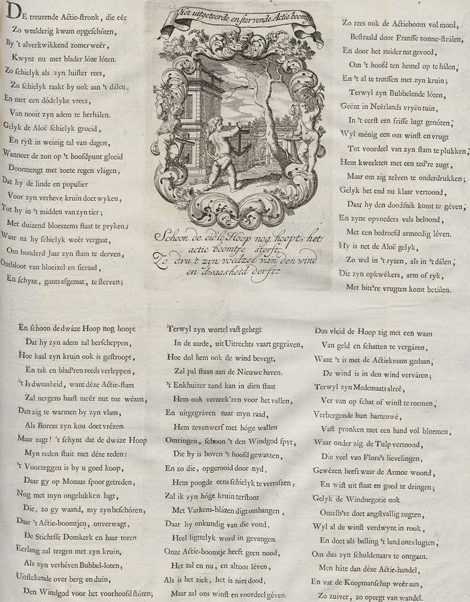 Het uitgeteerde en stervende Actie boompje
DE treurende Actie-stronk, die eêr
Zo weelderig kwam opgeschóten,
By 't alverkwikkend zomerwêêr,
Kwynt nu met blader lóze lóten.
Zo schielyk als zyn luister rees,
Zo schielyk raakt hy ook aan 't dálen;
En met een dódelyke vrees,
Van nooit zyn adem te herhálen.
Gelyk de Aloë schielyk groeid,
En ryst in weinig tal van dagen,
Wanneer de zon op 't hoofdpunt gloeid
Doormengt met zoete regen vlágen,
Dat hy de linde en populier
Voor zyn verheve kruin doet wyken,
Tot hy in 't midden van zyn tier;
Met duizend bloezems staat te pryken;
Waar na hy schielyk wêêr vergaat,
Om honderd Jaar zyn stam te derven,
Ontbloot van bloeizel en sieraad,
En schynt, gantsafgemat, te sterven;
Schoon de eidle Hoop nog hoopt, het
actie boomtje sterft,
Zo dra 't zyn voedzel van den wind
en dwaasheid derft.
Zo rees ook de Actieboom vol moed,
Bestraald door Fransse zonne-strálen,
En door het zuider nat gevoed,
Om 't hoofd ten hemel op te hálen,
En 't al te trotssen met zyn kruin;
Terwyl zyn Bubbelende lóten,
Geënt in Neêrlands vryën tuin,
In 't eerst een frisse lugt genóten,
Wyl ménig een om winst en vrugt
Tot voordeel van zyn stam te plukken,
Hem kweekten met een ted're zugt,
Maar om zig zelven te onderdrukken;
Gelyk het end nu klaar vertoond,
Daar hy den doodsnik komt te géven,
En zyne opvoeders vals beloond,
Met een bedroefd armoedig léven.
Hy is net de Aloë gelyk,
Zo wel in 't ryzen, als in 't dálen;
Die zyn opkwékers, arm of ryk,
Met bitt're vrugten komt betálen.
En schoon de dwáze Hoop nog hoopt
Dat hy zyn adem zal herscheppen,
Hoe kaal zyn kruin ook is gestroopt,
En tak en blad'ren reeds verleppen,
't Is dwaasheid, want déze Actie-stam
Zal nergens haast meêr nut toe wézen,
Dan zig te warmen by zyn vlam,
Als Boreas zyn kou doet vrézen.
Maar zagt! 't schynt dat de dwáze Hoop
Myn reden stuit met déze reden:
't Voorzeggen is by u goed koop,
Daar gy op Momus spoor getreden,
Nog met myn ongelukken lagt,
Die, zo gy waand, my zyn beschóren,
Daar 't Actie-boomtjen, onverwagt,
De Stichtse Domkerk en haar toren
Eerlang zal tergen met zyn kruin,
Als zyn verhéven Bubbel-loten,
Uitstekende over berg en duin,
Den Windgod voor het voorhoofd stóten;
Terwyl zyn wortel vast gehegt
In de aarde, uit Uitrechts vaart gegráven,
Hoe dol hem ook de wind bevegt,
Zal pal staan aan de Nieuwe haven.
't Enkhuizer zand kan in dien staat
Hem ook verzeek'ren voor het vallen,
En uitgegráven naar myn raad,
Hem zenverwerf met hóge wallen
Omringen, schoon 't den Windgod spyt,
Die hy is boven 't hoofd gewassen,
En zo die, opgerooid door nyd,
Hem poogde eens schielyk te verrassen,
Zal ik zyn hóge kruin terstont
Met Varkens-blázen digt omhangen,
Daar hy onkundig van die vond,
Heel ligtelyk word in gevangen.
Onze Actie-boomtje heeft geen nood,
Het zal en nu, en altoos léven,
Als is het ziek, het is niet dood,
Maar zal ons winst en voordeel géven.
Dus vleid de Hoop zig met een waan
Van geld en schatten te vergáren,
Want 't is met de Actiekraam gedaan,
De wind is in den wind verváren;
Terwyl zyn Medemaats alreê,
Ver van op schat of winst te roemen,
Verbergende hun hartenwé,
Vast pronken met een hand vol bloemen,
Waar onder zig de Tulp vertoond,
Die veel van Flora's lievelingen,
Gewézen heeft waar de Armoe woond,
En wist uit staat en goed te dringen;
Gelyk de Windnegotie ook
Ontelb're doet angstvallig zugten,
Wyl al de winst verdwynt in rook,
En doet als balling 't land ontvlugten,
Om dus zyn schuldenaars te ontgaan.
Men háte dan déze Actie-handel,
En vat de Koopmanschap weêr aan,
Zo zuiver, zo opregt van wandel.